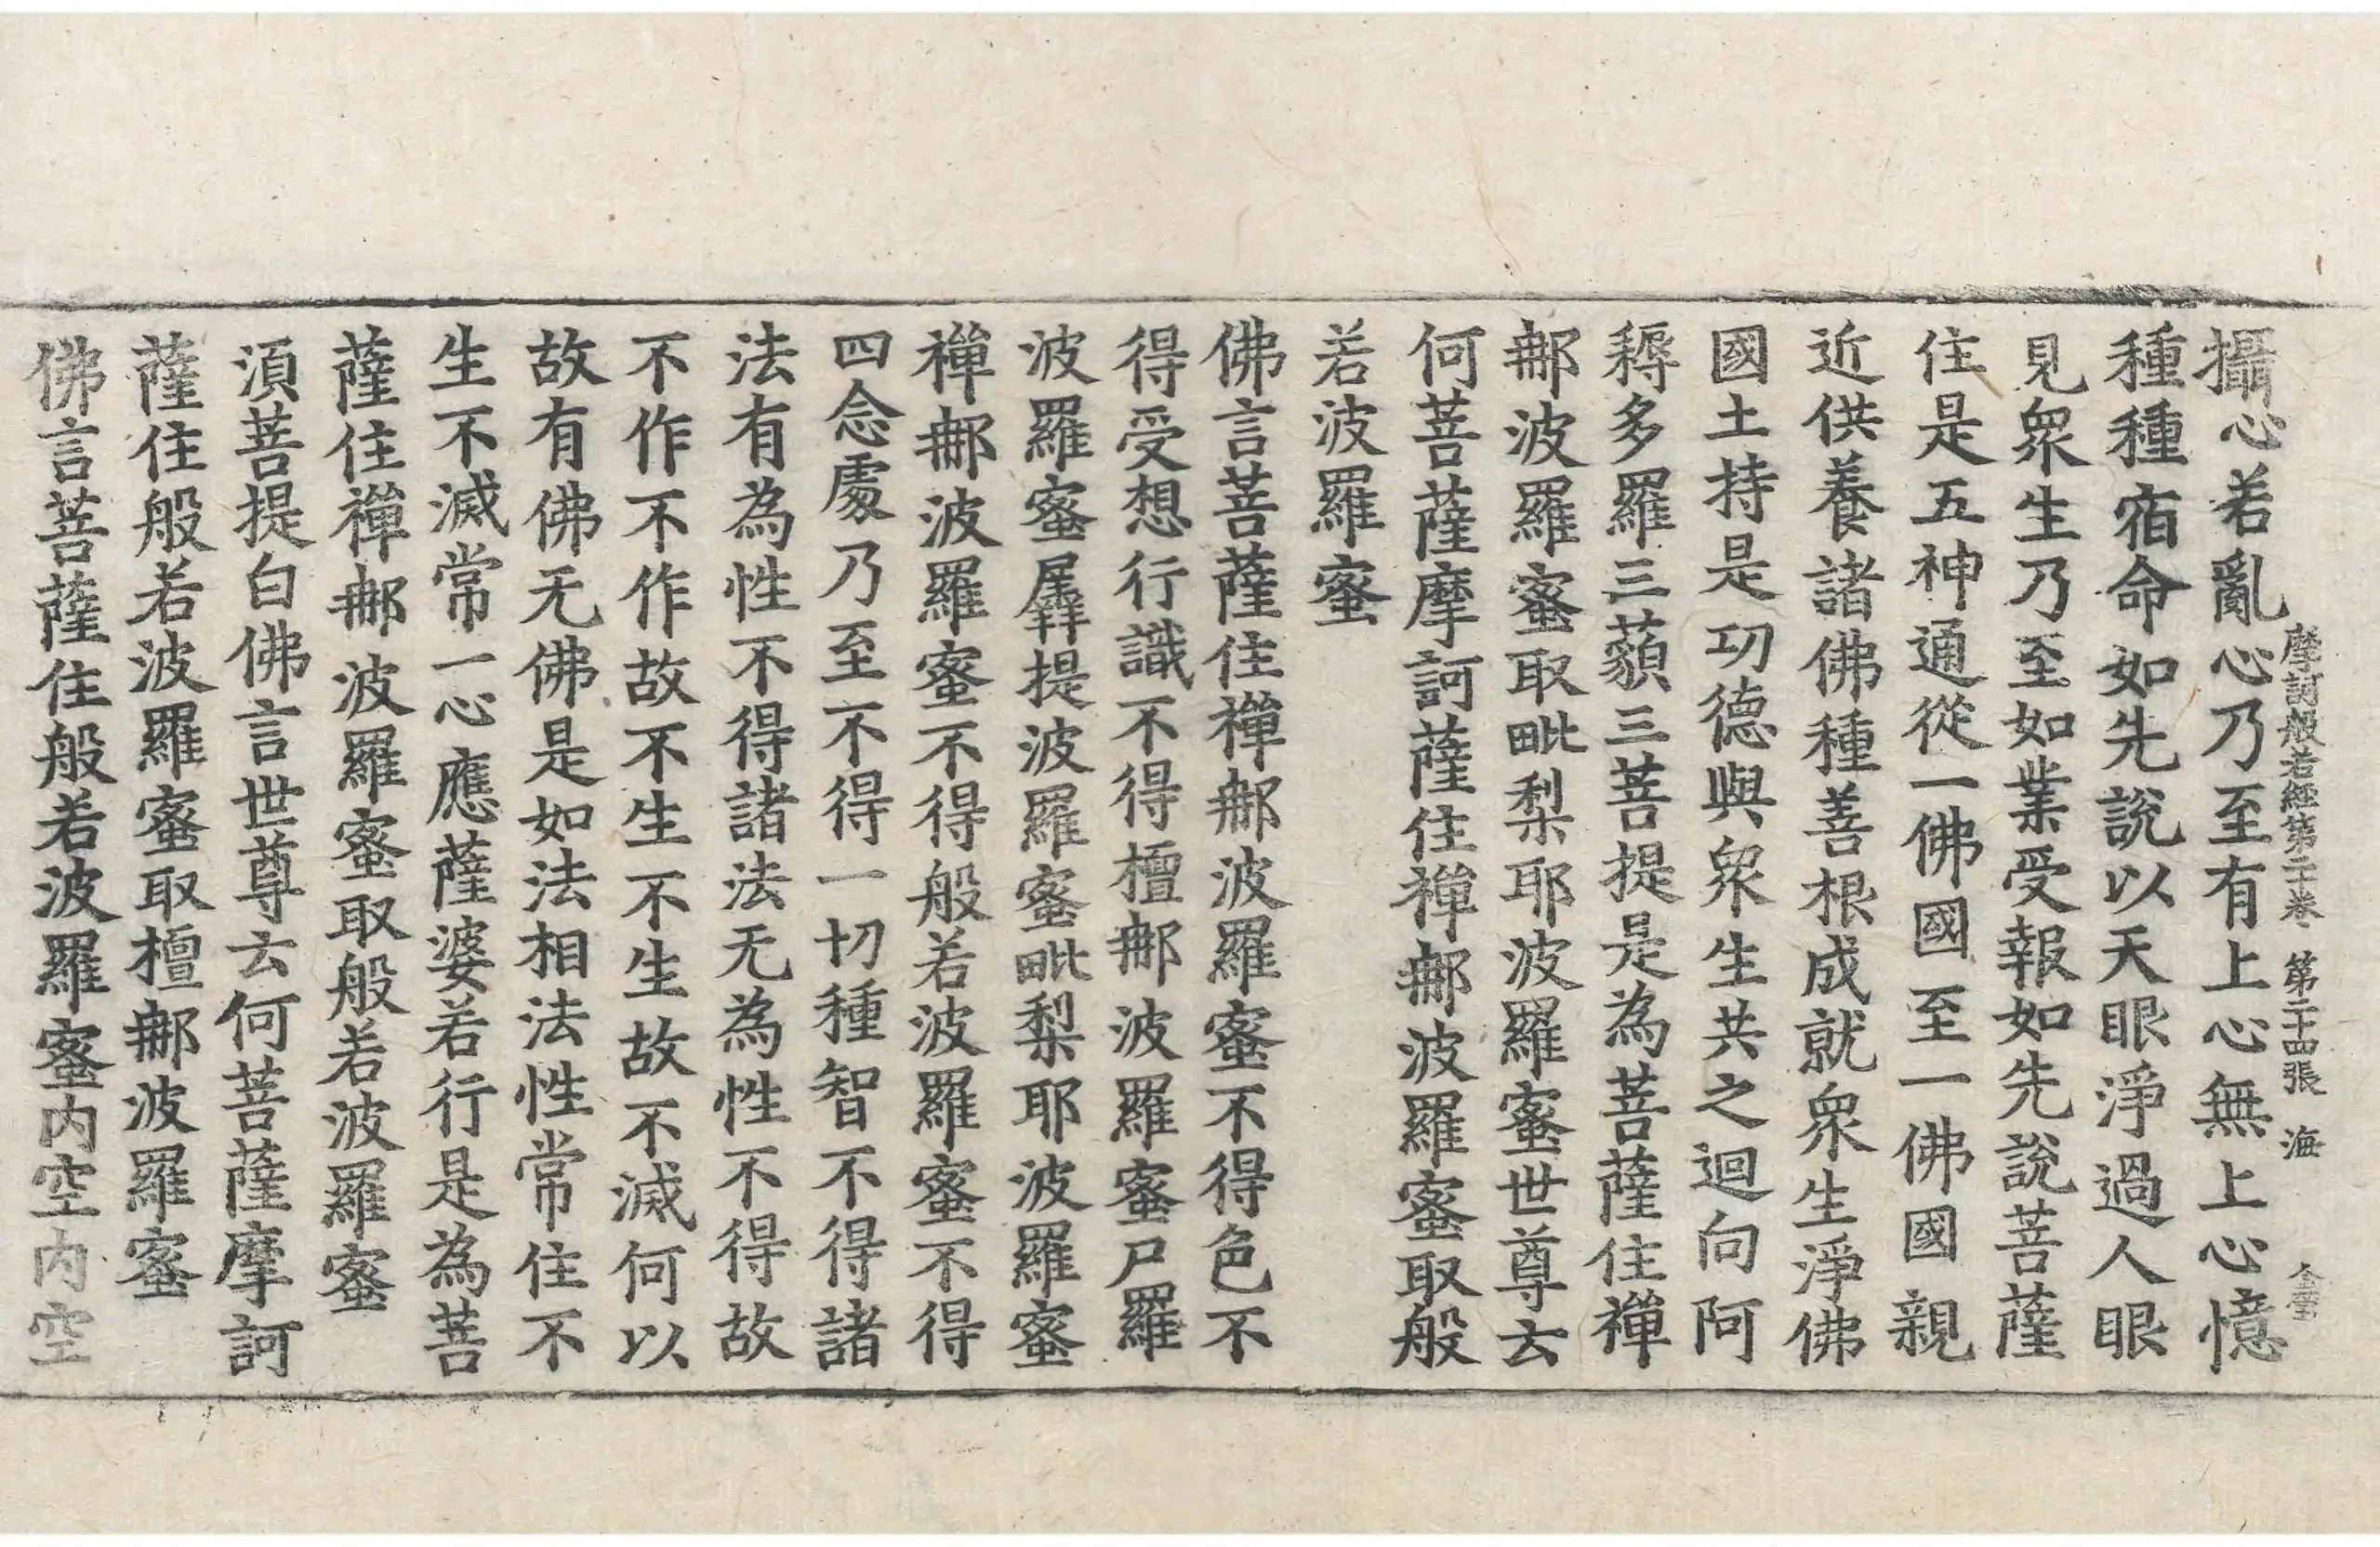 攝心若亂心乃至有上心無上心憶
摩訶般若經第二十卷 第二十四張 海
種種宿命如先說以天眼淨過人眼
見眾生乃至如業受報如先說菩薩
住是五神通從一佛國至一佛國親
近供養諸佛種善根成就眾生淨佛
國土持是功德與眾生共之迴向阿
耨多羅三藐三菩提是為菩薩住禪
那波羅蜜取毗梨耶波羅蜜世尊云
何菩薩摩訶薩住禪那波羅蜜取般
若波羅蜜
佛言菩薩住禪那波羅蜜不得色不
得受想行識不得檀那波羅蜜尸羅
波羅蜜羼提波羅蜜毗梨耶波羅蜜
禪那波羅蜜不得般若波羅蜜不得
四念處乃至不得一切種智不得諸
法有為性不得諸法无為性不得故
不作不作故不生不生故不滅何以
故有佛无佛是如法相法性常住不
生不滅常一心應薩婆若行是為菩
薩住禪那波羅蜜取般若波羅蜜
須菩提白佛言世尊云何菩薩摩訶
薩住般若波羅蜜取檀那波羅蜜
佛言菩薩住般若波羅蜜内空内空